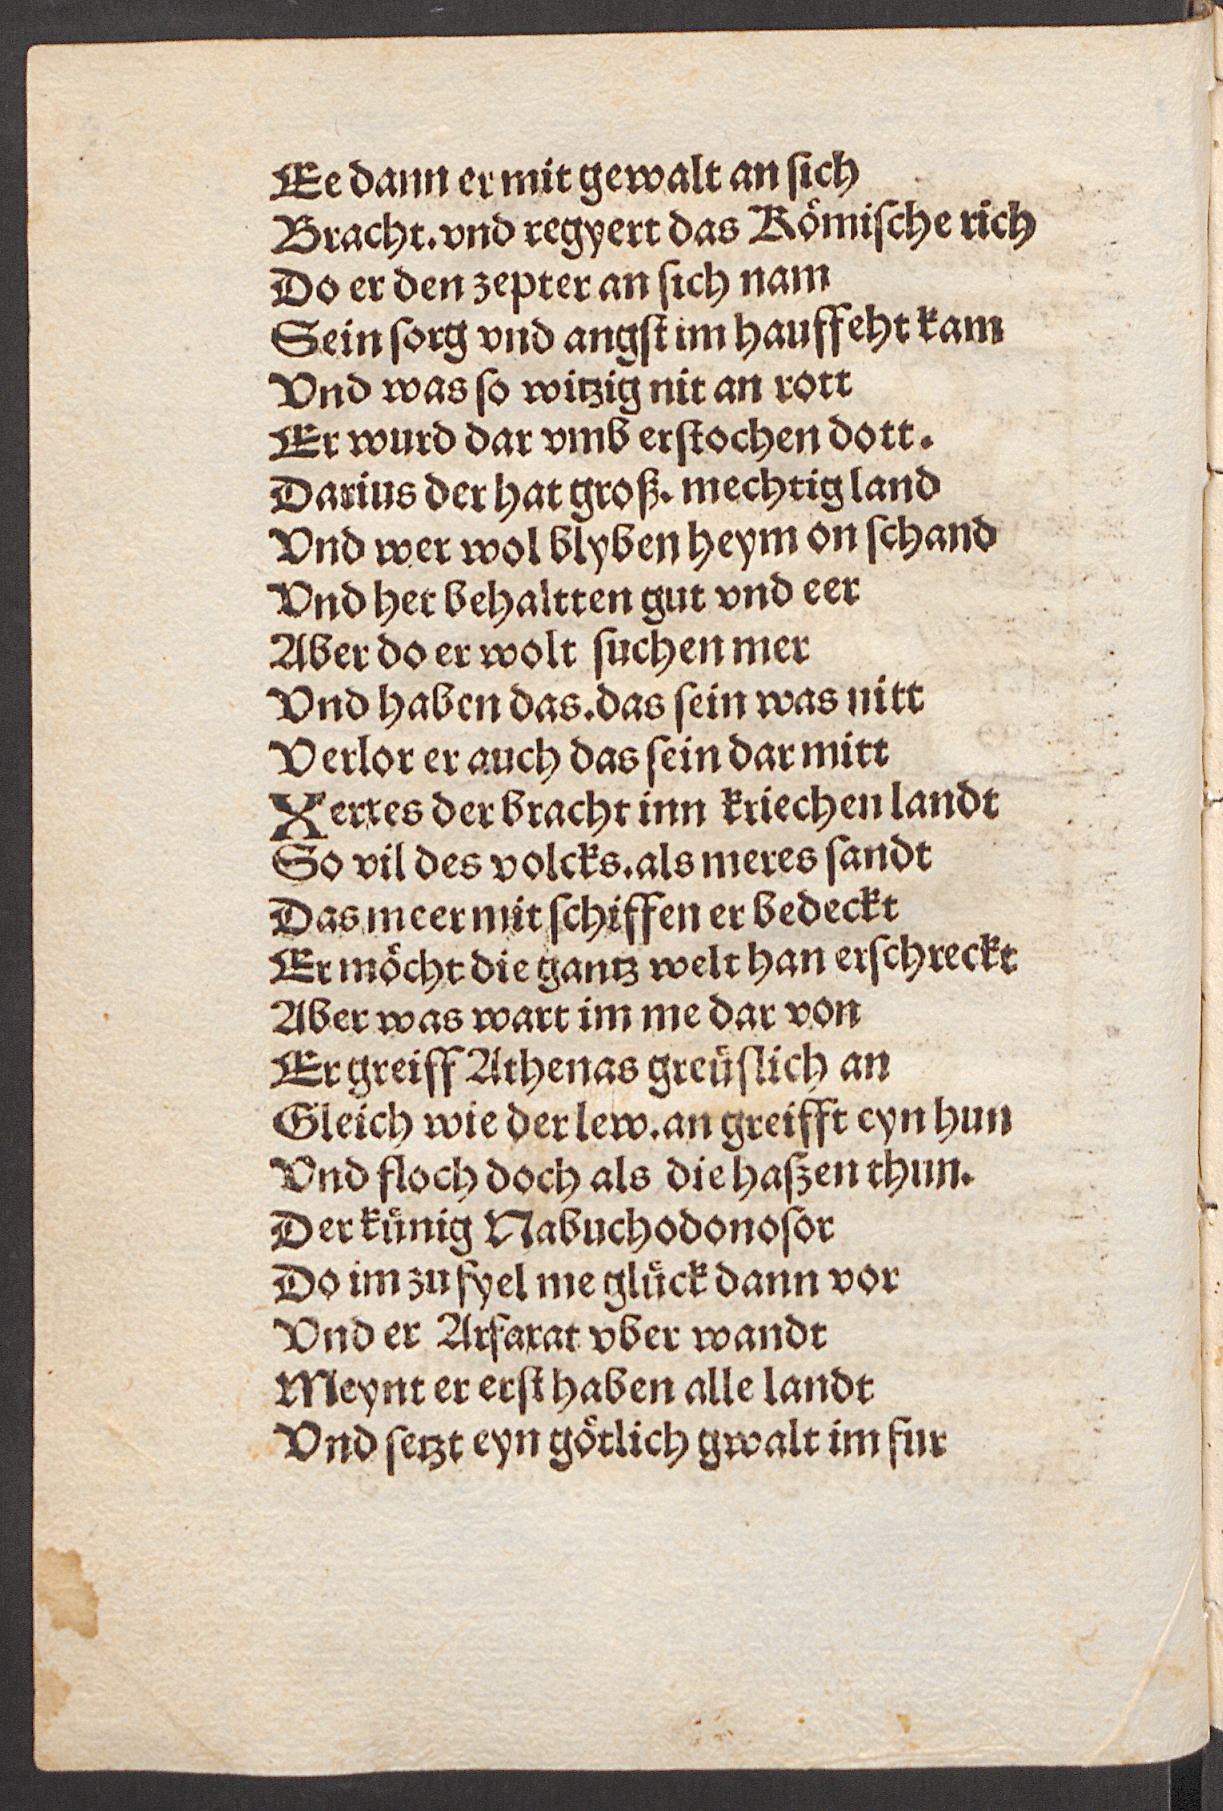 Ee dann er mit gewalt an sich
Bracht. vnd regyert das Römische rich
Do er den zepter an sich nam
Sein sorg vnd angst im hauffeht kam
Vnd was so witzig nit an rott
Er wurd dar vmb erstochen dott.
Darius der hat groß. mechtig land
Vnd wer wol blyben heym on schand
Vnd het behaltten gut vnd eer
Aber do er wolt suchen mer
Vnd haben das. das sein was nitt
Verlor er auch das sein dar mitt
Xerxes der bracht inn kriechen landt
So vil des volcks. als meres sandt
Das meer mit schiffen er bedeckt
Er möcht die gantz welt han erschreckt
Aber was wart im me dar von
Er greiff Athenas greüslich an
Gleich wie der lew. an greifft eyn hun
Vnd floch doch als die haßen thun.
Der künig Nabuchodonosor
Do im zu fyel me glück dann vor
Vnd er Arfaxat vber wandt
Meynt er erst haben alle landt
Vnd setzt eyn götlich gwalt im fur